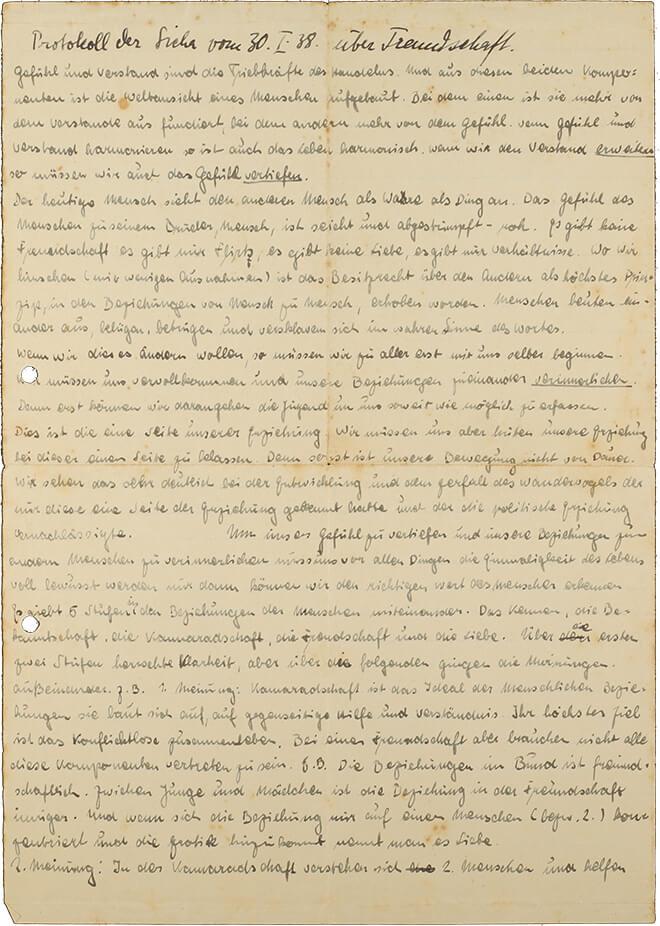 Protokoll der Sicha vom 30. I. 38. über Freundschaft.
Gefühl und Verstand sind die Triebkräfte des Handelns. Und aus diesen beiden Kompo-
nenten ist die Weltansicht eines Menschen aufgebaut. Bei dem einen ist sie mehr von
dem Verstande aus fundiert, bei dem andern mehr von dem Gefühl. Wenn Gefühl und
Verstand harmonieren so ist auch das Leben harmonisch. Wenn wir den Verstand erweitern
so müssen wir auch das Gefühl vertiefen.
Der heutige Mensch sieht den anderen Mensch als Wahre als Ding an. Das Gefühl des
Menschen zu seinem Bruder, Mensch, ist seicht und abgestumpft - roh. Es gibt keine
Freundschaft es gibt nur Flirts, es gibt keine Liebe, es gibt nur Verhältnisse. Wo wir
hinsehen (mit wenigen Ausnahmen) ist das Besitzrecht über den Andern als höchstes Prin-
zip, in den Beziehungen von Mensch zu Mensch, erhoben worden. Menschen beuten ein-
ander aus, belügen, betrügen und versklaven sich im wahren Sinne des Wortes.
Wenn wir dies ändern wollen, so müssen wir zu aller erst mit uns selber beginnen.
Wir müssen uns vervollkommnen und unsere Beziehungen zueinander verinnerlichen.
Dann erst können wir darangehen die Jugend um uns soweit wie möglich zu erfassen.
Dies ist die eine Seite unserer Erziehung. Wir müssen uns aber hüten unsere Erziehung
bei dieser einen Seite zu belassen. Denn sonst ist unsere Bewegung nicht von Dauer.
Wir sehen das sehr deutlich bei der Entwicklung und dem Zerfall des Wandervogels der
nur diese eine Seite der Erziehung gekannt hatte und der die politische Erziehung
vernachlässigte. Um unser Gefühl zu vertiefen und unsere Beziehungen zum
andern Menschen zu verinnerlichen muss uns vor allen Dingen die Einmaligkeit des Lebens
voll bewusst werden nur dann können wir den richtigen Wert des Menschen erkennen
Es giebt 5 Stufen in den Beziehungen der Menschen miteinander. Das Kennen, die Be-
kanntschaft, die Kammaradschaft, die Freundschaft und die Liebe. Über die ersten
zwei Stufen herrschte Klarheit, aber über die folgenden gingen die Meinungen
außeinander. z.B. 1. Meinung: Kamaradschaft ist das Ideal der Menschlichen Bezie-
hungen sie baut sich auf, auf gegenseitige Hilfe und Verständnis. Ihr höchstes Ziel
ist das Konflicktlose zusammenleben. Bei einer Freundschaft aber brauchen nicht alle
diese Komponenten vertreten zu sein. z.B. Die Beziehungen im Bund ist freund-
schaftlich. Zwischen Junge und Mädchen ist die Beziehung in der Freundschaft
inniger. Und wenn sich die Beziehung nur auf einen Menschen (bezw. 2.) kon-
zentriert und die Erotik hinzukommt nennt man es Liebe.
2. Meinung: In der Kamaradschaft verstehen sich 2. Menschen und helfen